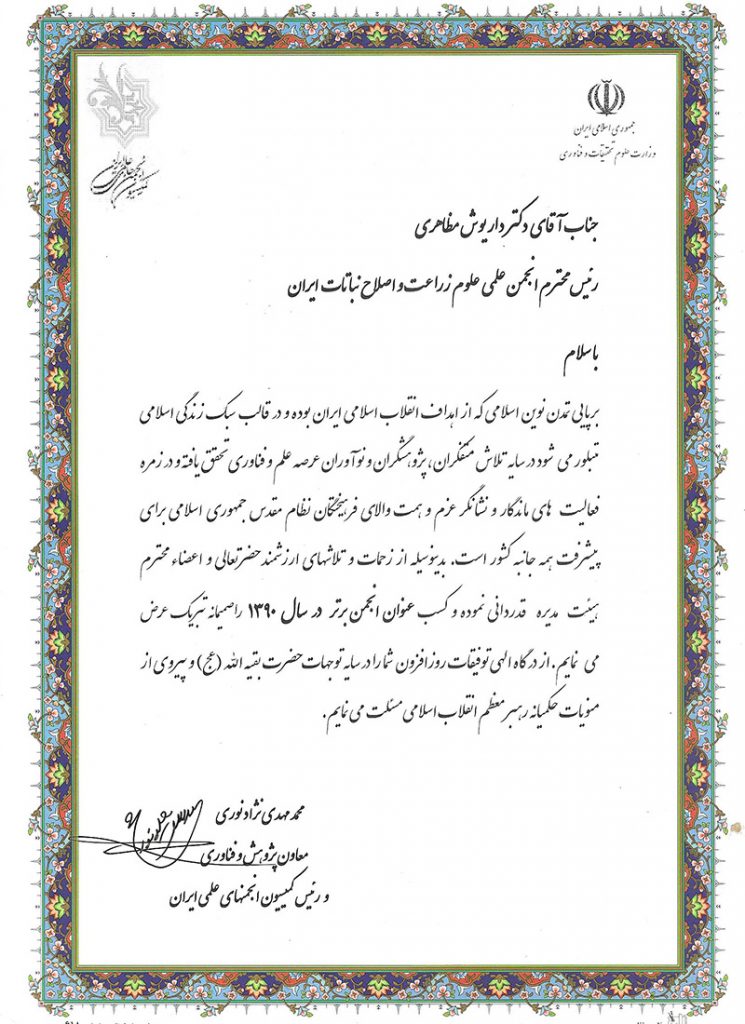 جمهوری اسلامی ایران
وزارت علوم تحقیقات و فناوری
کمیسیون انجمن‌های علمی ایران
جناب آقای دکتر داریوش مظاهری
رئیس محترم انجمن علمی علوم زراعت و اصلاح نباتات ایران
باسلام
برپایی تمدن نوین اسلامی که از اهداف انقلاب اسلامی ایران بوده و در قالب سبک زندگی اسلامی
متبلور می شود در سایه تلاش متفکران، پژوهشگران و نوآوران عرصه علم و فناوری تحقق یافته و در زمره
فعالیت های ماندگار و نشانگر عزم و همت والای فرهیختگان نظام مقدس جمهوری اسلامی برای
پیشرفت همه جانبه کشور است. بدینوسیله از زحمات و تلاشهای ارزشمند حضرتعالی و اعضاء محترم
هیئت مدیره قدردانی نموده و کسب عنوان انجمن برتر در سال ۱۳۹۰ را صمیمانه تبریک عرض
می نمایم. از درگاه الهی توفیقات روزافزون شما را در سایه توجهات حضرت بقیه الله (عج) و پیروی از
منویات حکمیانه رهبر معظم انقلاب اسلامی مسئلت می نمایم.
محمد مهدی نژاد نوری
معاون پژوهش و فناوری
و رئیس کمیسیون انجمنهای علمی ایران